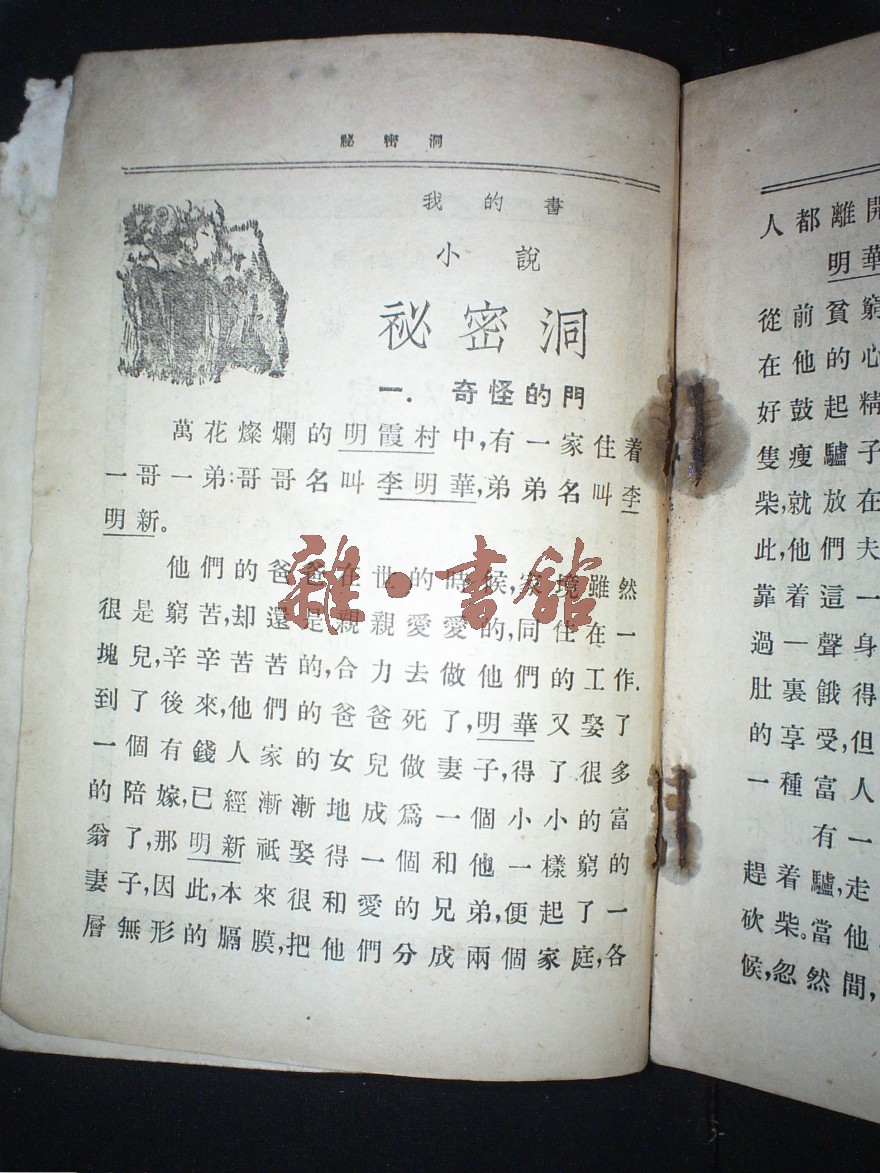 祕密洞
我的書
小說
祕密洞
一．奇怪的門
萬花燦爛的明霞村中,有一家住着
一哥一弟:哥哥名叫李明華,弟弟名叫李
明新。
他們的爸爸在世的時候,家境雖然
很是窮苦,却還是親親愛愛的,同住在一
塊兒,辛辛苦苦的,合力去做他們的工作.
到了後來,他們的爸爸死了,明華又娶了
一個有錢人家的女兒做妻子,得了很多
的陪嫁,已經漸漸地成爲一個小小的富
翁了,那明新祇娶得一個和他一樣窮的
妻子,因此,本來很和愛的兄弟,便起了一
層無形的膈膜,把他們分成兩個家庭,各
雜·書館
人都離開
明華
從前貧窮
在他的心
好鼓起精
隻瘦驢子
柴,就放在
此,他們夫
靠着這一
過一聲身
肚裏餓得
的享受,但
一種富人
有一
趕着驢,走
砍柴。當他
候,忽然間,